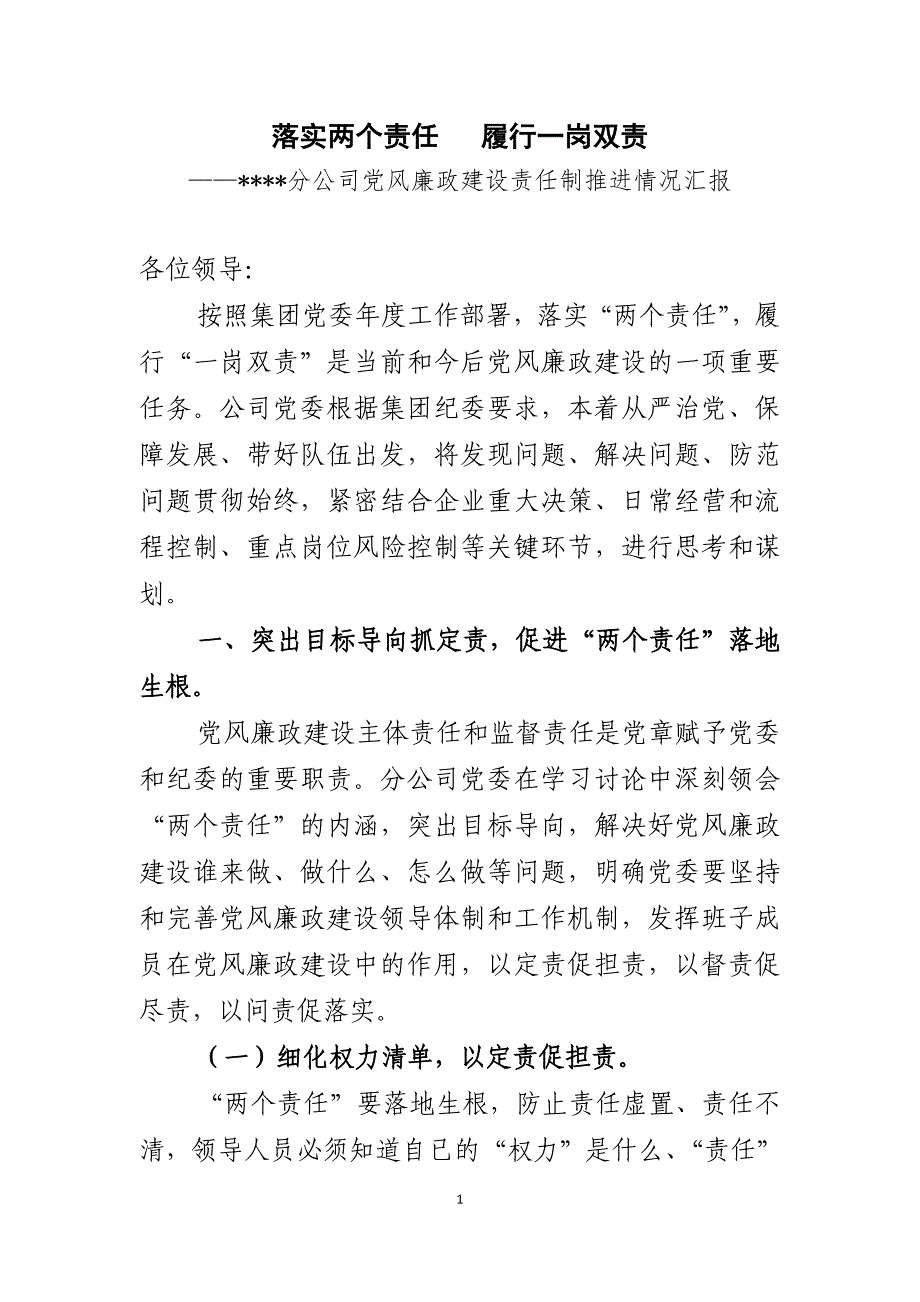 落实两个责任　　履行一岗双责
——****分公司党风廉政建设责任制推进情况汇报
各位领导：
按照集团党委年度工作部署，落实“两个责任”，履
行“一岗双责”是当前和今后党风廉政建设的一项重要
任务。公司党委根据集团纪委要求，本着从严治党、保
障发展、带好队伍出发，将发现问题、解决问题、防范
问题贯彻始终，紧密结合企业重大决策、日常经营和流
程控制、重点岗位风险控制等关键环节，进行思考和谋
划。
一、突出目标导向抓定责，促进“两个责任”落地
生根。
党风廉政建设主体责任和监督责任是党章赋予党委
和纪委的重要职责。分公司党委在学习讨论中深刻领会
“两个责任”的内涵，突出目标导向，解决好党风廉政
建设谁来做、做什么、怎么做等问题，明确党委要坚持
和完善党风廉政建设领导体制和工作机制，发挥班子成
员在党风廉政建设中的作用，以定责促担责，以督责促
尽责，以问责促落实。
（一）细化权力清单，以定责促担责。
“两个责任”要落地生根，防止责任虚置、责任不
清，领导人员必须知道自已的“权力”是什么、“责任”
1